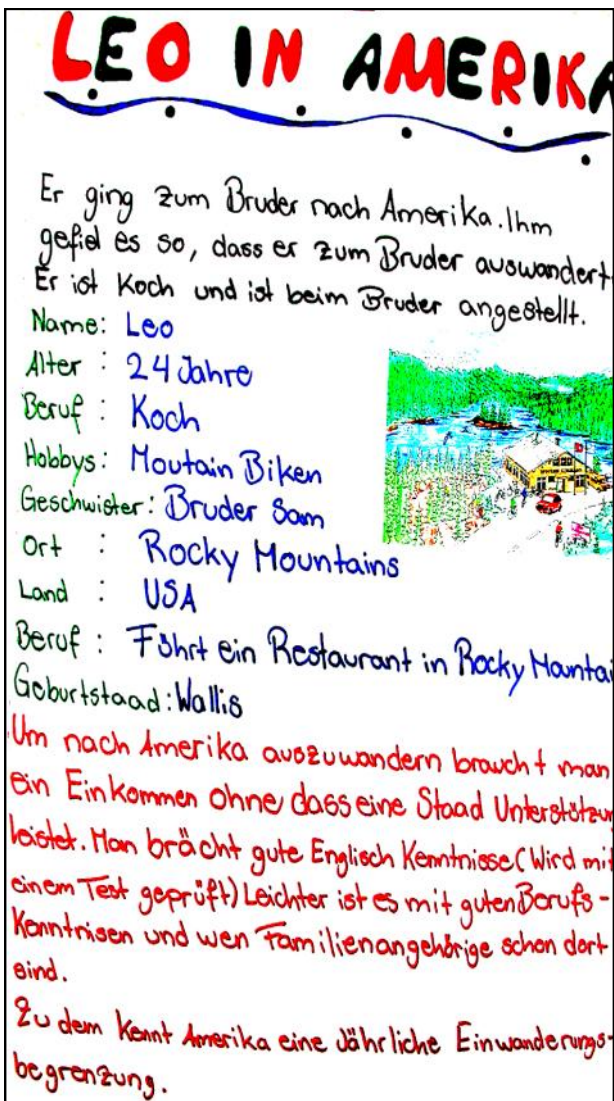 LEO IN AMERIKA
Er ging zum Bruder nach Amerika. Ihm
gefiel es so, dass er zum Bruder auswandert
Er ist Koch und ist beim Bruder angestellt.
Name: Leo
Alter : 24 Jahre
Beruf : Koch
Hobbys: Moutain Biken
Geschwister: Bruder Sam
Ort : Rocky Mountains
Land : USA
Beruf : Führt ein Restaurant in Rocky Mountai
Geburtstaad: Wallis
Um nach Amerika auszuwandern braucht man
ein Einkommen ohne dass eine Staad Unterstützun
leistet. Man brächt gute Englisch Kenntnisse (Wird mit
einem Test geprüft) Leichter ist es mit guten Berufs-
Kenntnisen und wen Familienangehörige schon dort
sind.
Zu dem Kennt Amerika eine Jährliche Einwanderungs-
begrenzung.